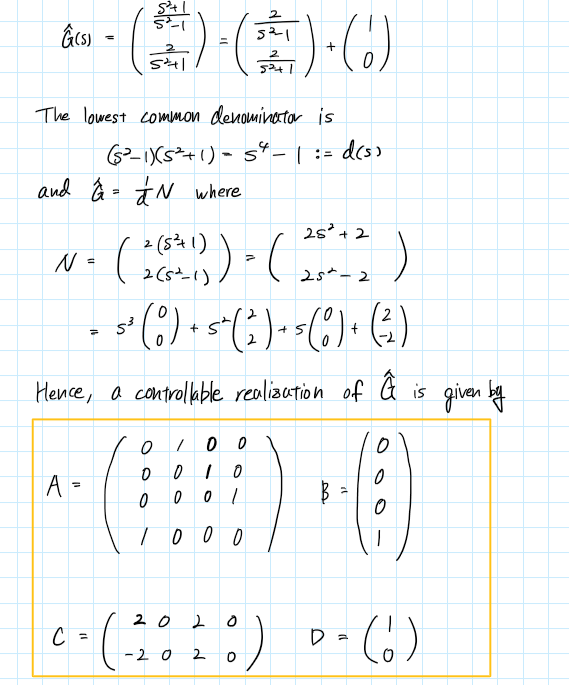 Ĝ(s) = ( (s²+1)/(s²-1) ; 2/(s²+1) ) = ( 2/(s²-1) ; 2/(s²+1) ) + ( 1 ; 0 )
The lowest common denominator is
(s²-1)(s²+1) = s⁴-1 := d(s)
and Ĝ = 1/d N where
N = ( 2(s²+1) ; 2(s²-1) ) = ( 2s²+2 ; 2s²-2 )
= s³( 0 ; 0 ) + s²( 2 ; 2 ) + s( 0 ; 0 ) + ( 2 ; -2 )
Hence, a controllable realization of Ĝ is given by
A = ( 0 1 0 0 ; 0 0 1 0 ; 0 0 0 1 ; 1 0 0 0 ) B = ( 0 ; 0 ; 0 ; 1 )
C = ( 2 0 2 0 ; -2 0 2 0 ) D = ( 1 ; 0 )